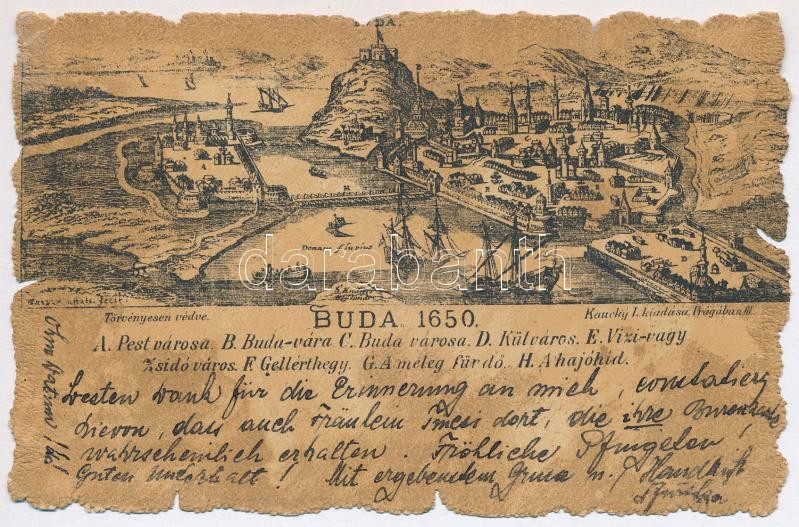 BUDA.
A
H
Donau fluvius
Törvényesen védve.
BUDA 1650.
Kaucky I. kiadása. Prágában III.
A. Pest városa. B. Buda-vára C. Buda városa. D. Külváros. E. Vizi-vagy
Zsidó város. F. Gellérthegy. G. A meleg fürdő. H. A hajóhid.
Besten Dank für die Erinnerung an mich,
hievon, dass auch Fräulein dort, die ihre
wahrscheinlich erhalten. Fröhliche Pfingsten!
Guten Unterhalt! Mit ergebendem Gruss
Ohne Datum!
darabanth